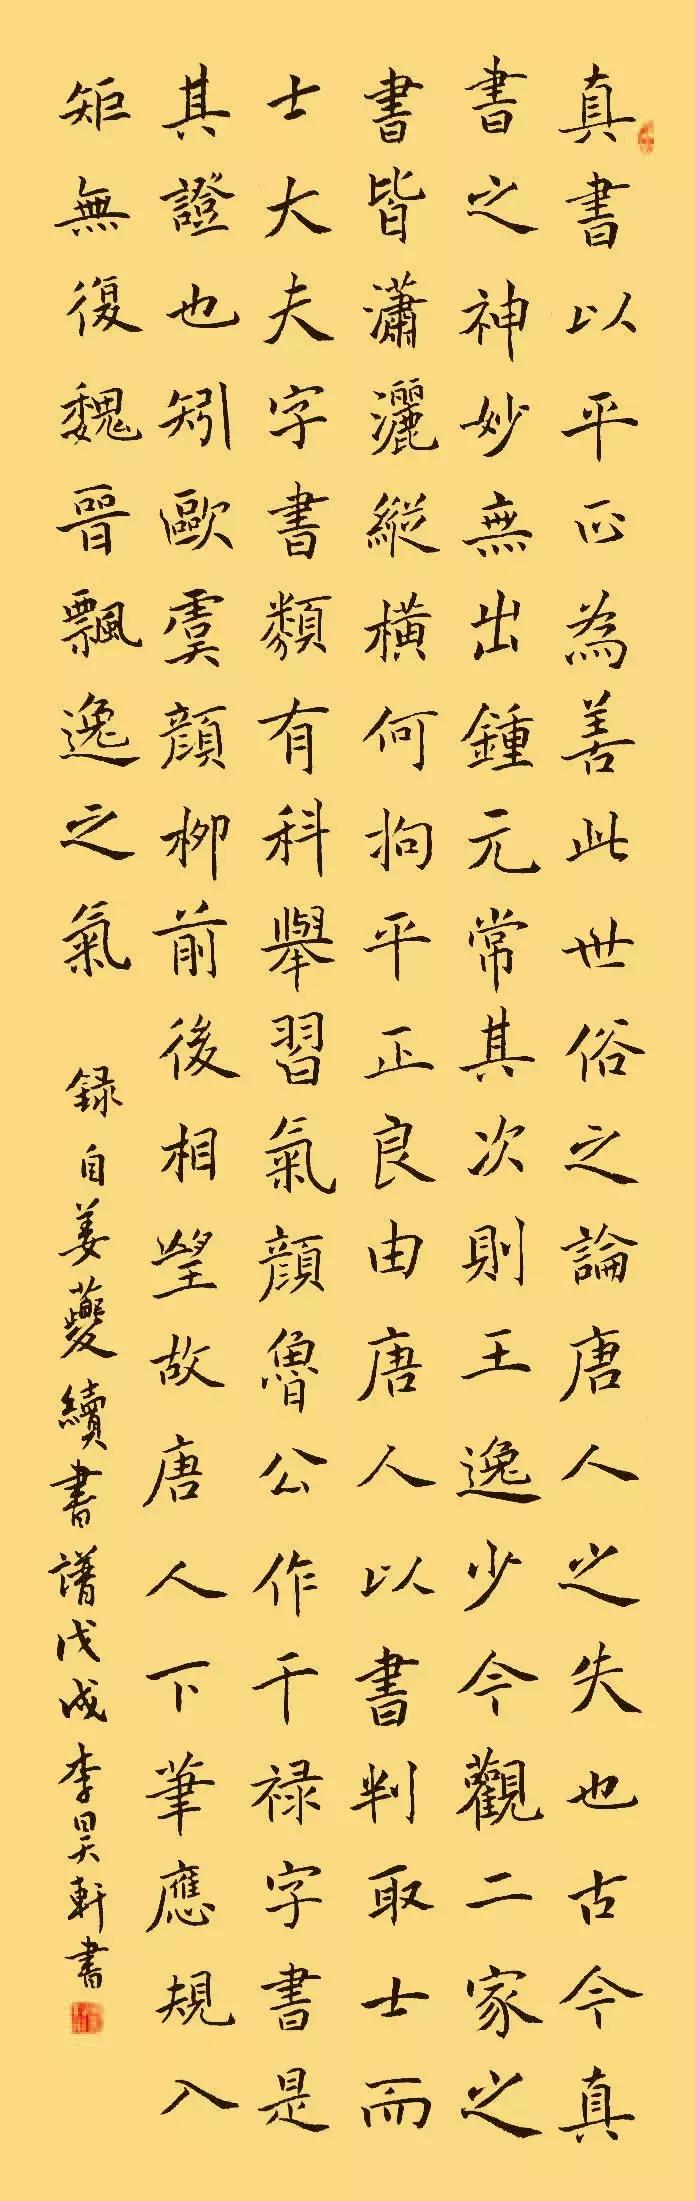 真書以平正為善此世俗之論唐人之失也古今真
書之神妙無出鍾元常其次則王逸少今觀二家之
書皆瀟灑縱橫何拘平正良由唐人以書判取士而
士大夫字書類有科舉習氣顏魯公作干禄字書是
其證也矧歐虞顏柳前後相望故唐人下筆應規入
矩無復魏晉飄逸之氣
録自姜夔續書譜戊戌李昊軒書